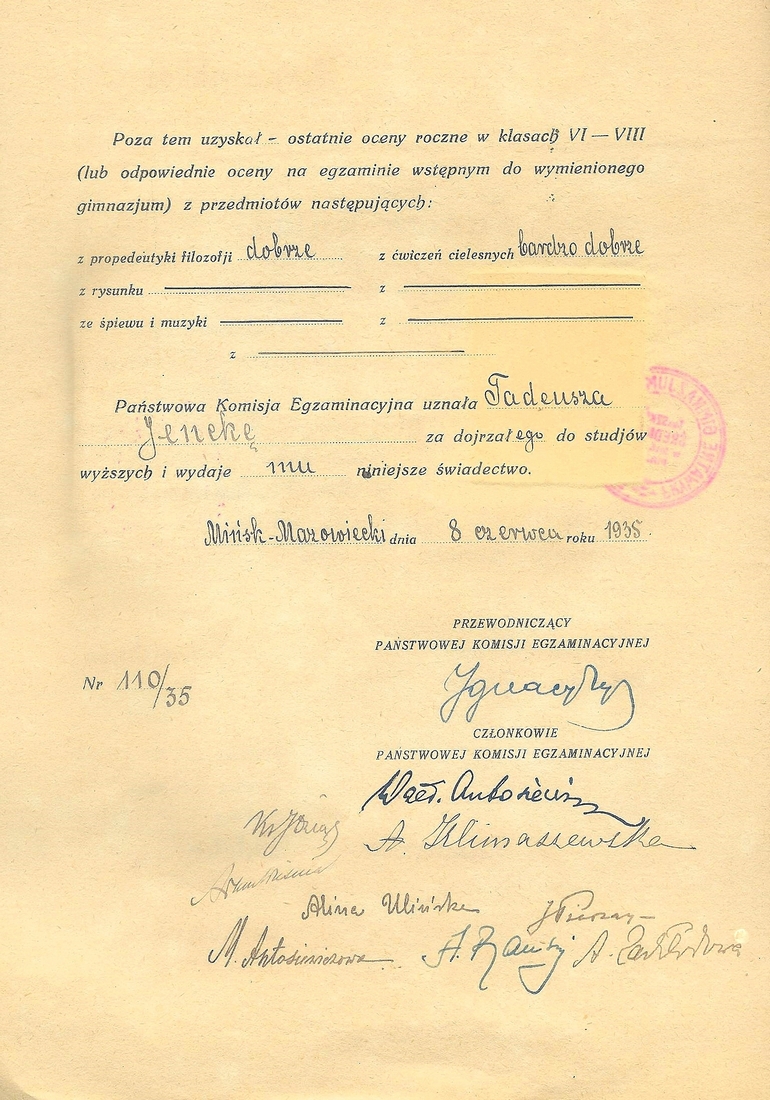 Poza tem uzyskał – ostatnie oceny roczne w klasach VI — VIII
(lub odpowiednie oceny na egzaminie wstępnym do wymienionego
gimnazjum) z przedmiotów następujących:
z propedeutyki filozofji dobrze z ćwiczeń cielesnych bardzo dobrze
z rysunku z
ze śpiewu i muzyki z
z
Państwowa Komisja Egzaminacyjna uznała Tadeusza
Jenekę za dojrzałego do studjów
wyższych i wydaje mu niniejsze świadectwo.
Mińsk-Mazowiecki dnia 8 czerwca roku 1935
PRZEWODNICZĄCY
PAŃSTWOWEJ KOMISJI EGZAMINACYJNEJ
Nr 110/35
CZŁONKOWIE
PAŃSTWOWEJ KOMISJI EGZAMINACYJNEJ
A. Klimaszewska
Alina Ulińska